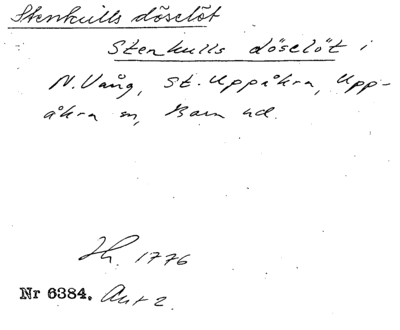 Stenkulls döselöt
Stenkulls döselöt i
N. Vång, St. Uppåkra, Upp-
åkra sn, Bara hd.
Lh. 1776
Nr 6384. Akt 2.